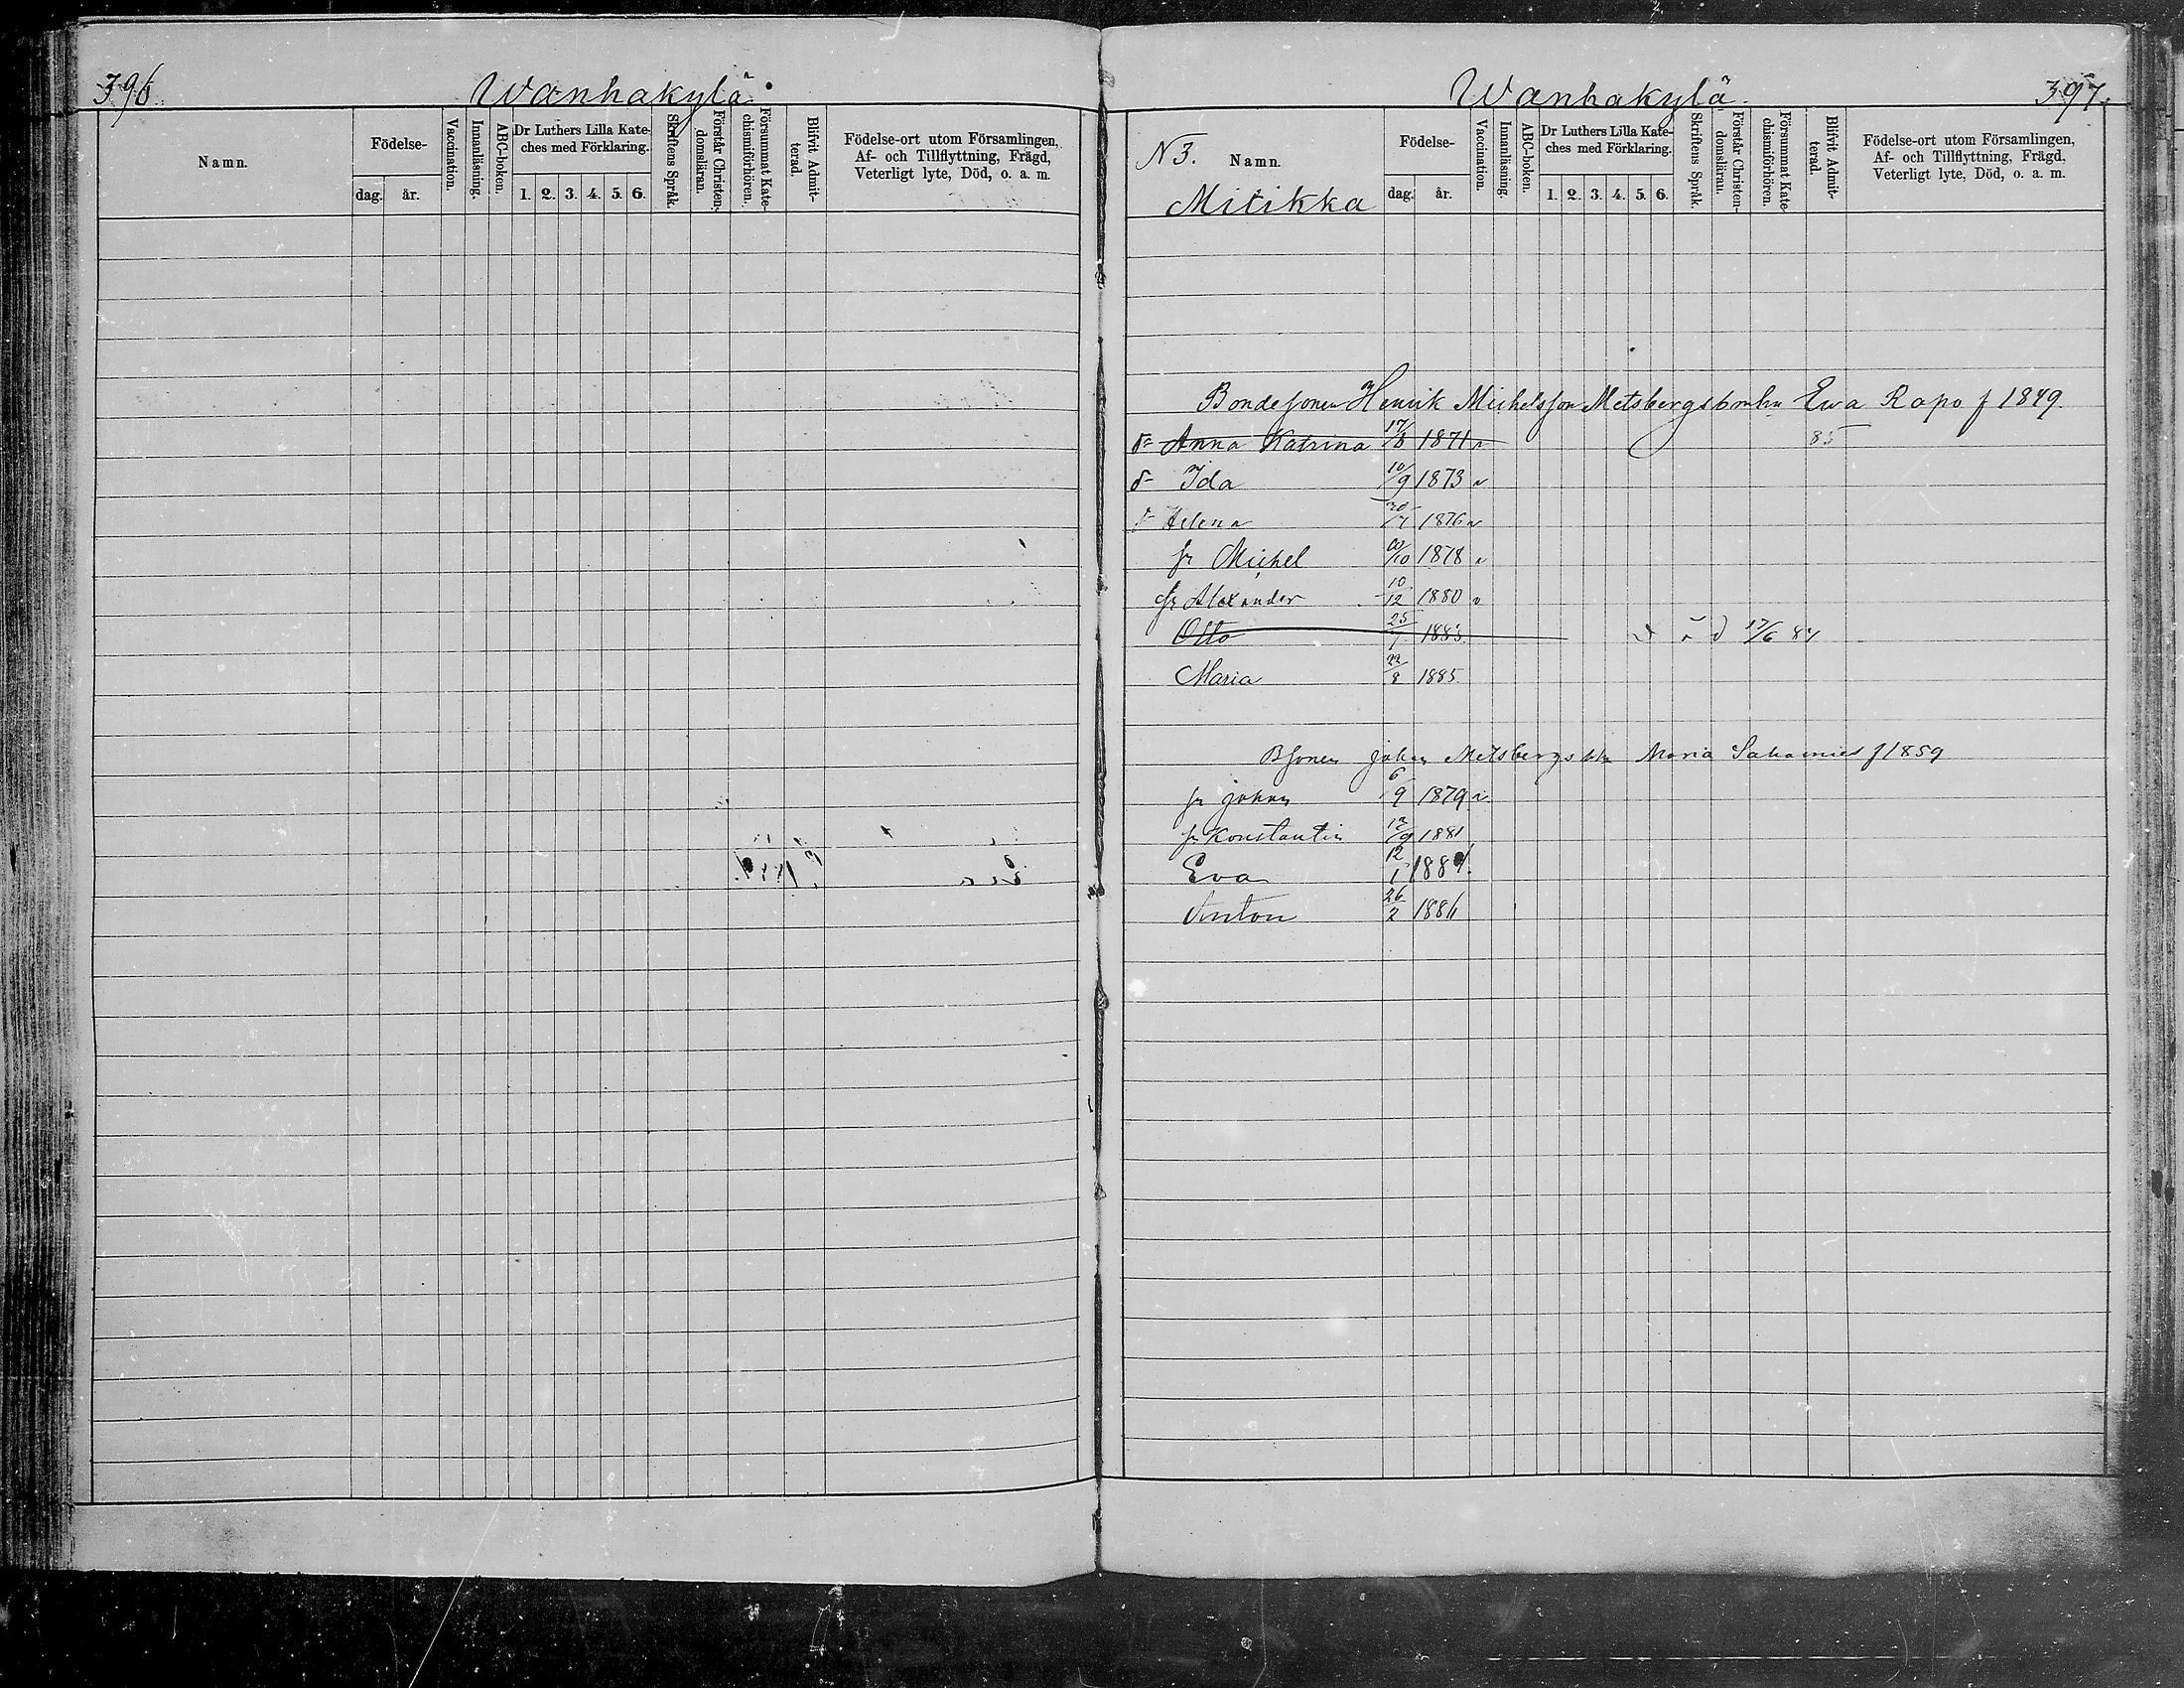 396
Wanhakylä
Namn.
Födelse-
dag.
år.
Vaccination.
Innanläsning.
ABC-boken.
Dr Luthers Lilla Kate-
ches med Förklaring.
1. 2. 3. 4. 5. 6.
Skriftens Språk.
Förstår Christen-
domsläran.
Försummat Kate-
chismiförhören.
Blifvit Admit-
terad.
Födelse-ort utom Församlingen,
Af- och Tillflyttning, Frägd,
Veterligt lyte, Död, o. a. m.
Wanhakylä.
397.
N 3.
Namn.
Mitikka
Födelse-
dag.
år.
Vaccination.
Innanläsning.
ABC-boken.
Dr Luthers Lilla Kate-
ches med Förklaring.
1. 2. 3. 4. 5. 6.
Skriftens Språk.
Förstår Christen-
domsläran.
Försummat Kate-
chismiförhören.
Blifvit Admit-
terad.
Födelse-ort utom Församlingen,
Af- och Tillflyttning, Frägd,
Veterligt lyte, Död, o. a. m.
Bondesonen Henrik Michelsson Metsbergs Ewa Rapo f 1849.
Anna Katrina 17/8 1871 v 85
Ida 10/9 1873 v
Helena 1876 v
sn Michel 1878 v
sn Alexander 10/12 1880 v
Otto 25/1 1883. d 17/6 84
Maria 22/8 1885.
Bsonen Johan Metsbergs Maria f 1859
sn Johan 6/9 1879 v
sn Konstantin 12/9 1881
Eva 12/1 1884.
Anton 26/2 1886